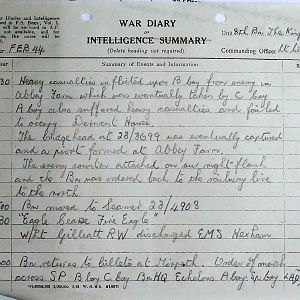 WAR DIARY
OF
INTELLIGENCE SUMMARY
(Delete heading not required).
Unit 8th Bn. The King
Commanding Officer Lt. Col
FEB 44
30 Heavy casualties inflicted upon B Coy from enemy in
Abbey Farm which was eventually taken by C Coy
A Coy also suffered heavy casualties and failed
to occupy Derwent House.
The bridgehead at 23/3699 was eventually captured
and a pivot formed at Abbey Farm.
The enemy counter attacked on our right flank
and the Bn was ordered back to the railway line
to the north
Bn moved to Seamer 23/4903
30 "Eagle Cease Fire Eagle"
W/Lt Gilliatt RW discharged EMS Hexham
00 Bn returns to billets at Morpeth. Order of march
across SP B Coy C Coy Bn HQ Echelons A Coy Sp Coy